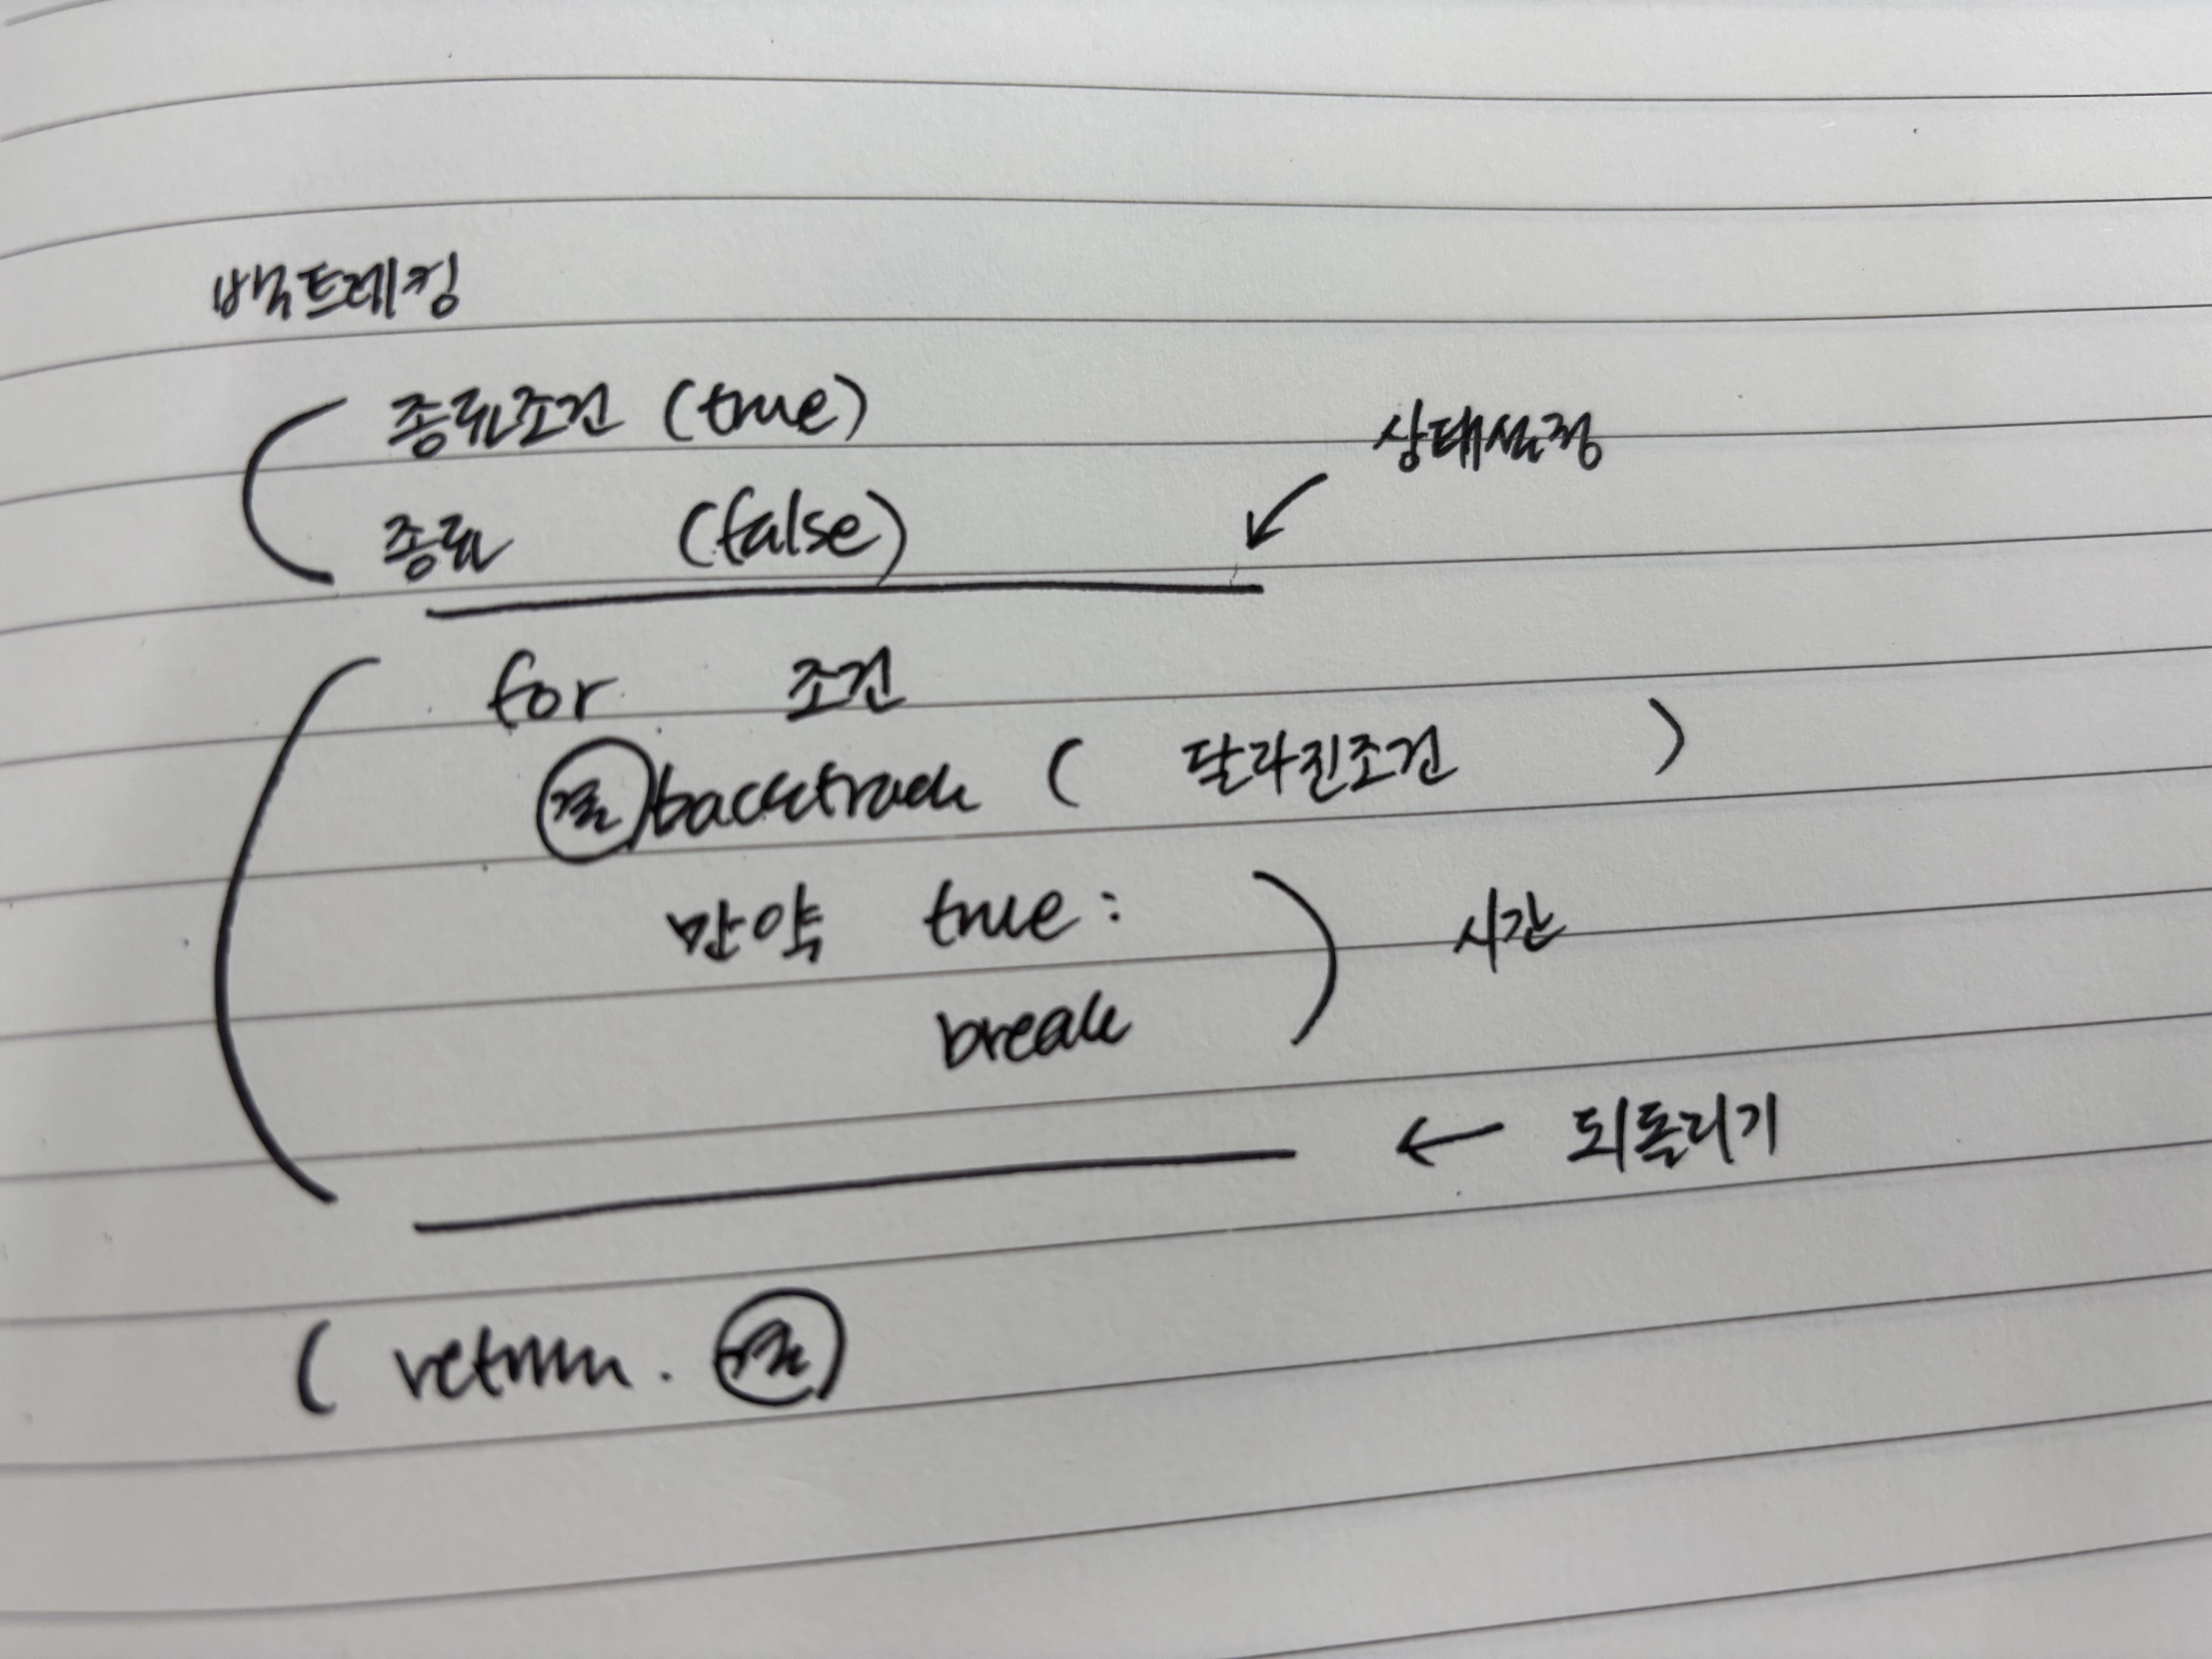 백트레킹
종료조건 (true)
상태설정
종료 (false)
for 조건
backtrack ( 달라진조건 )
만약 true :
시간
break
← 되돌리기
( return .